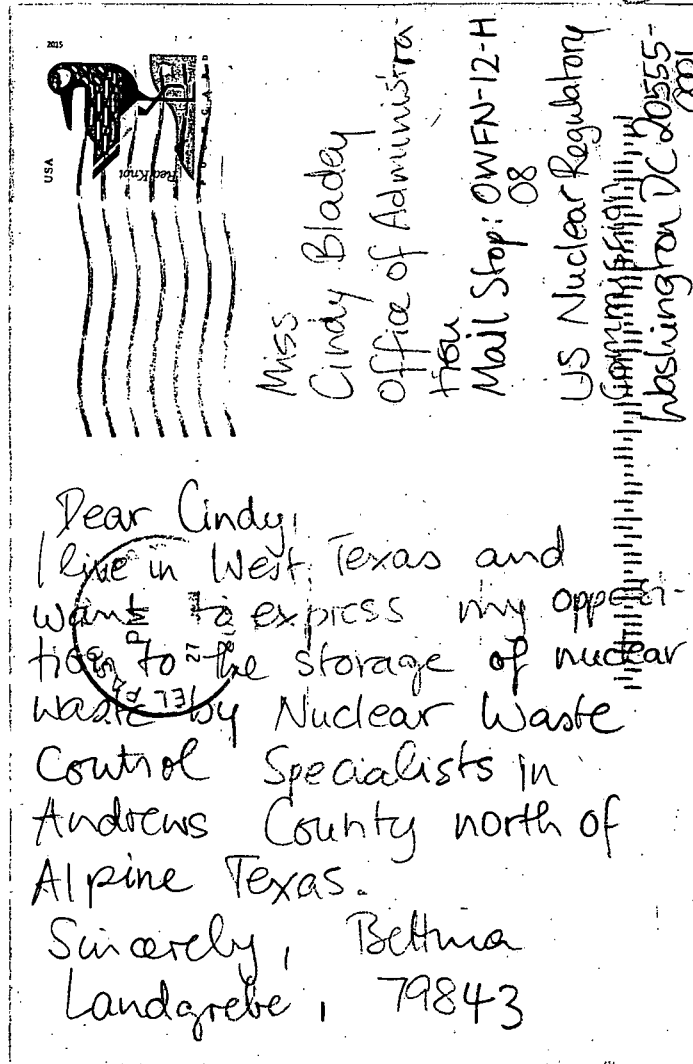 2015
USA
Red Knot
POSTCARD
Miss
Cindy Bladey
Office of Administra-
tion
Mail Stop: OWFN-12-H
08
US Nuclear Regulatory
Commission
Washington DC 20555-
0001
Dear Cindy,
I live in West Texas and
want to express my opposi-
tion to the storage of nuclear
waste by Nuclear Waste
Control Specialists in
Andrews County north of
Alpine Texas.
Sincerely, Bettina
Landgrebe, 79843
EL PASO
PM
27